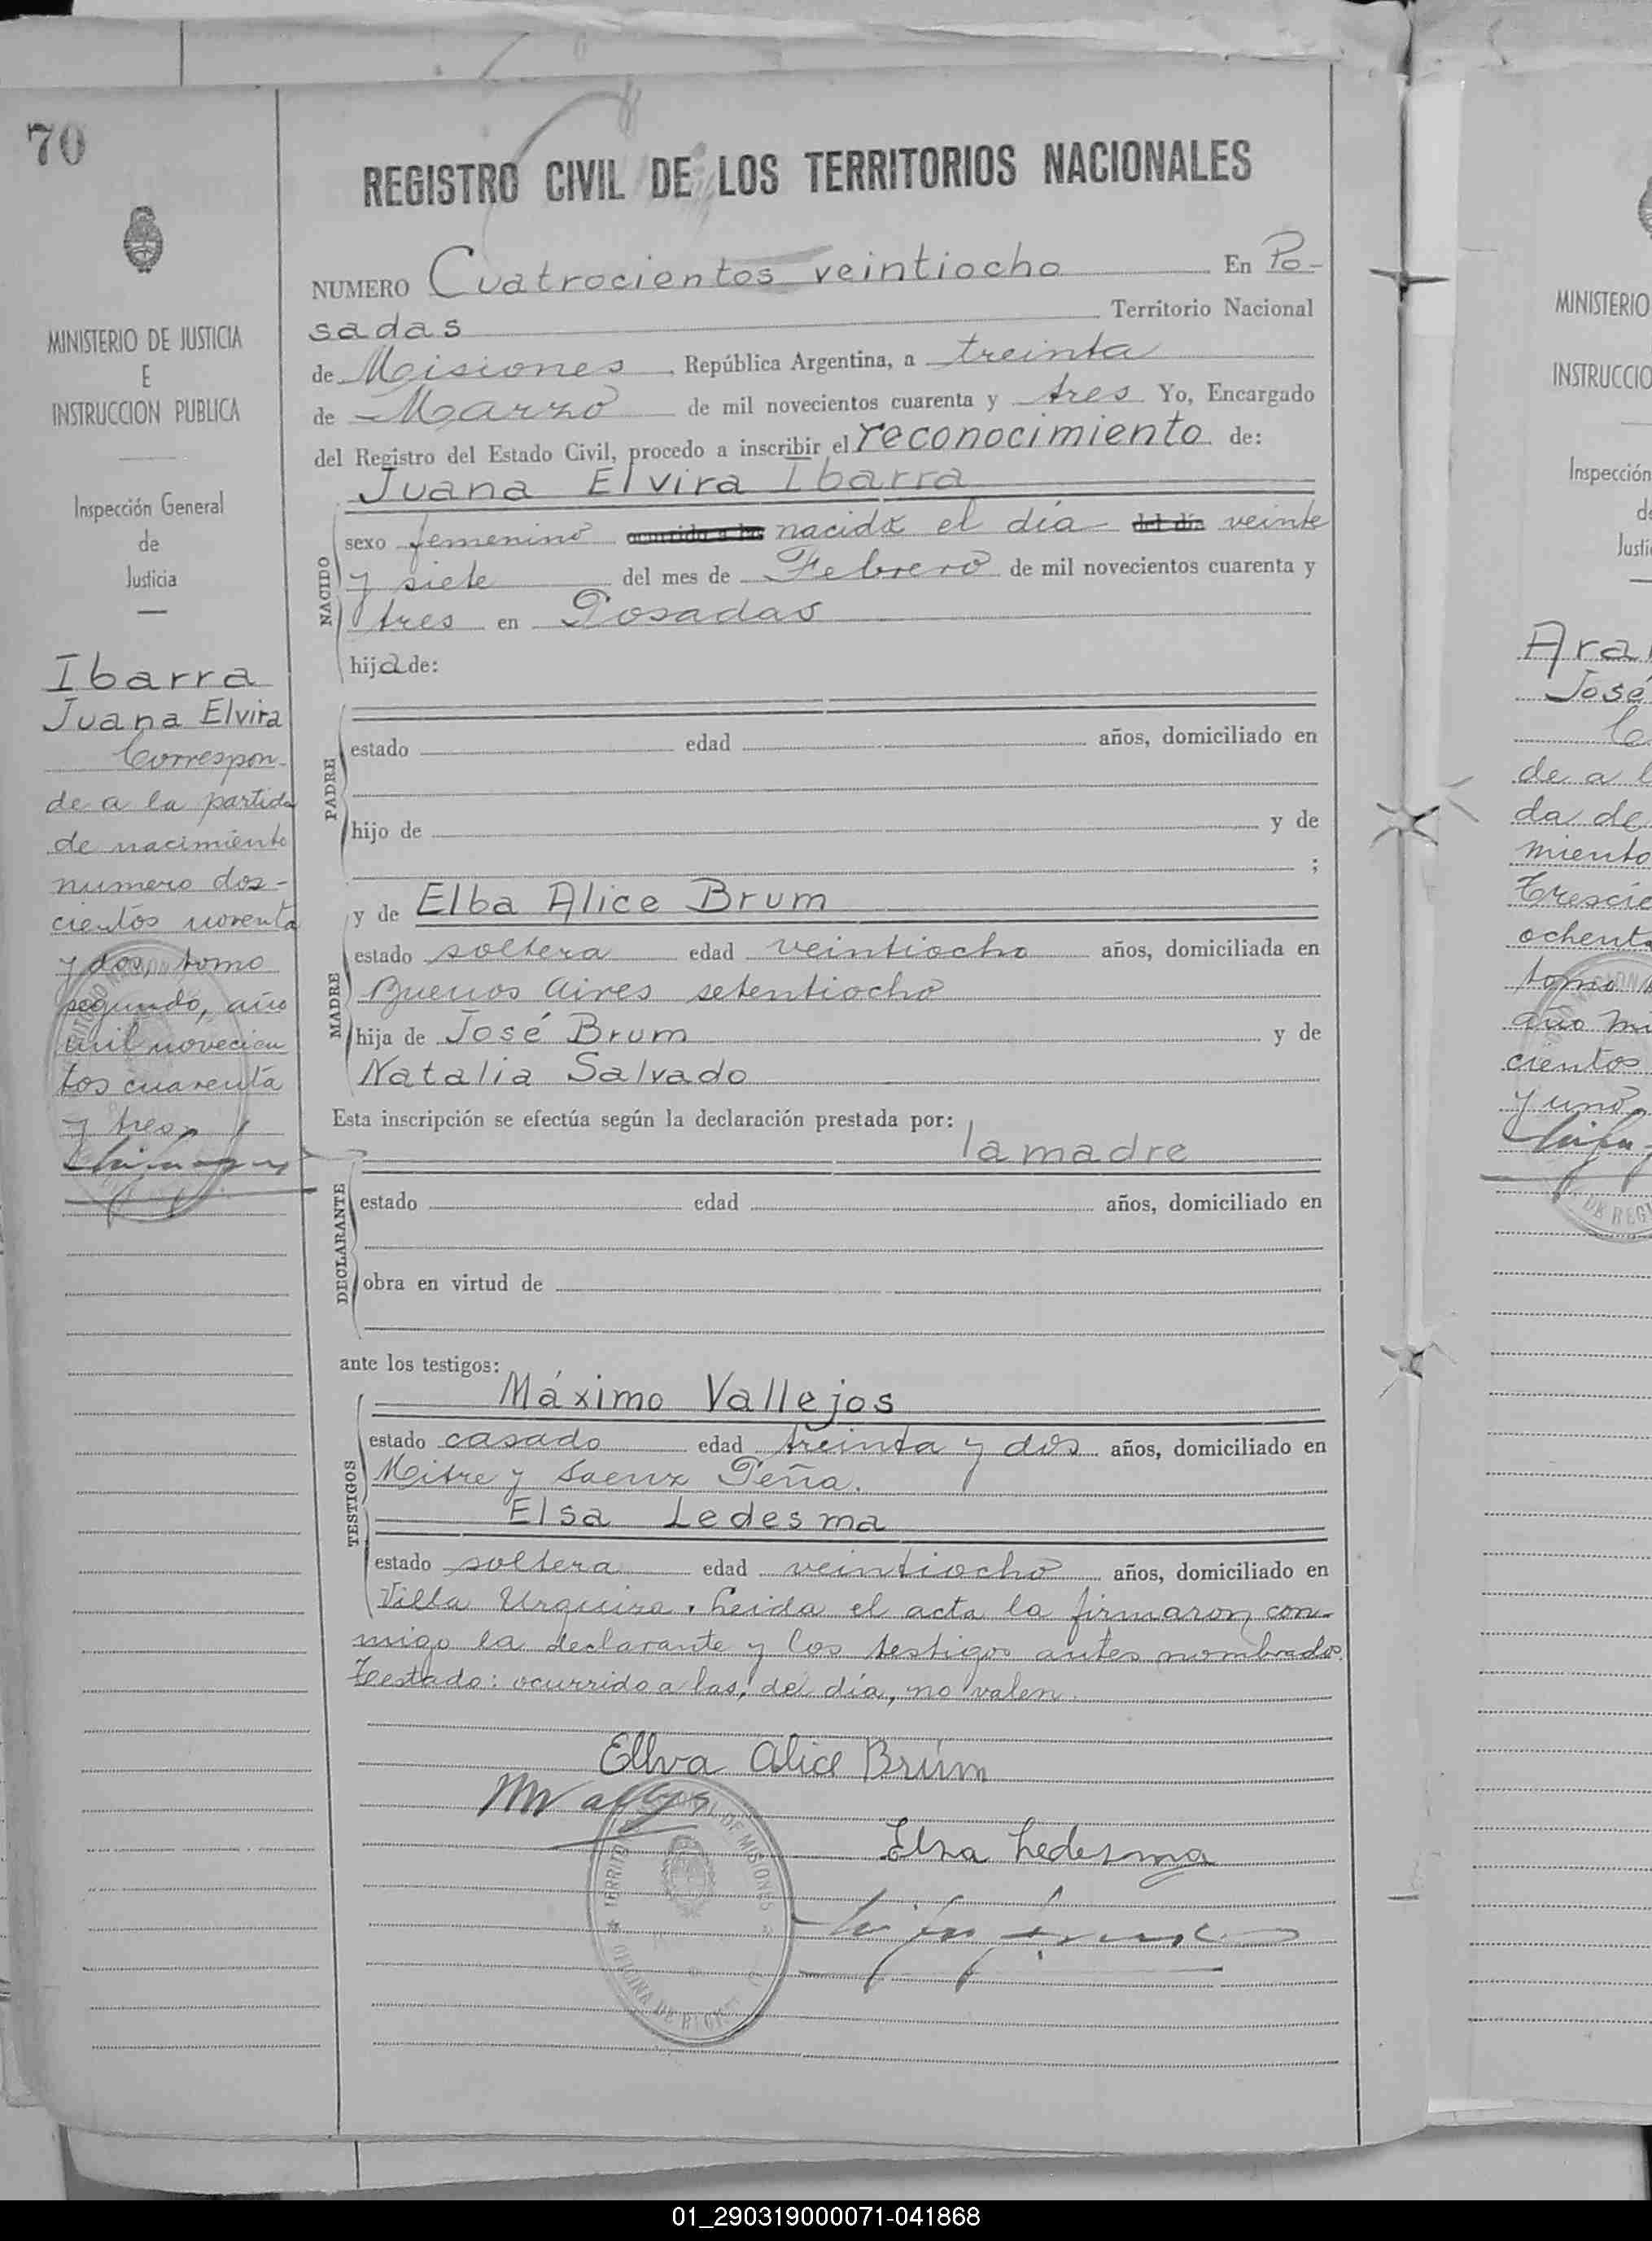 70
MINISTERIO DE JUSTICIA
E
INSTRUCCION PUBLICA
Inspección General
de
Justicia
Ibarra
Juana Elvira
Correspon-
de a la partida
de nacimiento
numero dos-
cientos noventa
y dos, tomo
segundo, año
mil novecien
tos cuarenta
y tres
REGISTRO CIVIL DE LOS TERRITORIOS NACIONALES
NUMERO Cuatrocientos veintiocho En Po-
sadas Territorio Nacional
de Misiones, República Argentina, a treinta
de Marzo de mil novecientos cuarenta y tres Yo, Encargado
del Registro del Estado Civil, procedo a inscribir el reconocimiento de:
Juana Elvira Ibarra
NACIDO
sexo femenino ocurrido a las nacida el día del día veinte
y siete del mes de Febrero de mil novecientos cuarenta y
tres en Posadas
hija de:
PADRE
estado edad años, domiciliado en
hijo de y de
;
MADRE
y de Elba Alice Brum
estado soltera edad veintiocho años, domiciliada en
Buenos Aires setentiocho
hija de José Brum y de
Natalia Salvado
Esta inscripción se efectúa según la declaración prestada por:
la madre
DECLARANTE
estado edad años, domiciliado en
obra en virtud de
ante los testigos:
TESTIGOS
Máximo Vallejos
estado casado edad treinta y dos años, domiciliado en
Mitre y Saenz Peña.
Elsa Ledesma
estado soltera edad veintiocho años, domiciliado en
Villa Urquiza. Leida el acta la firmaron con-
migo la declarante y los testigos antes nombrados.
Testado: ocurrido a las, del día, no valen.
Ellva Alice Brúm
Elsa Ledesma
TERRITORIO NACIONAL DE MISIONES
OFICINA DE REGISTRO
MINISTERIO
INSTRUCCIO
Inspección
de
Justi
José
de a l
da de
miento
Trescie
ochent
tomo
año mi
cientos
y uno
DE REGI
01_290319000071-041868